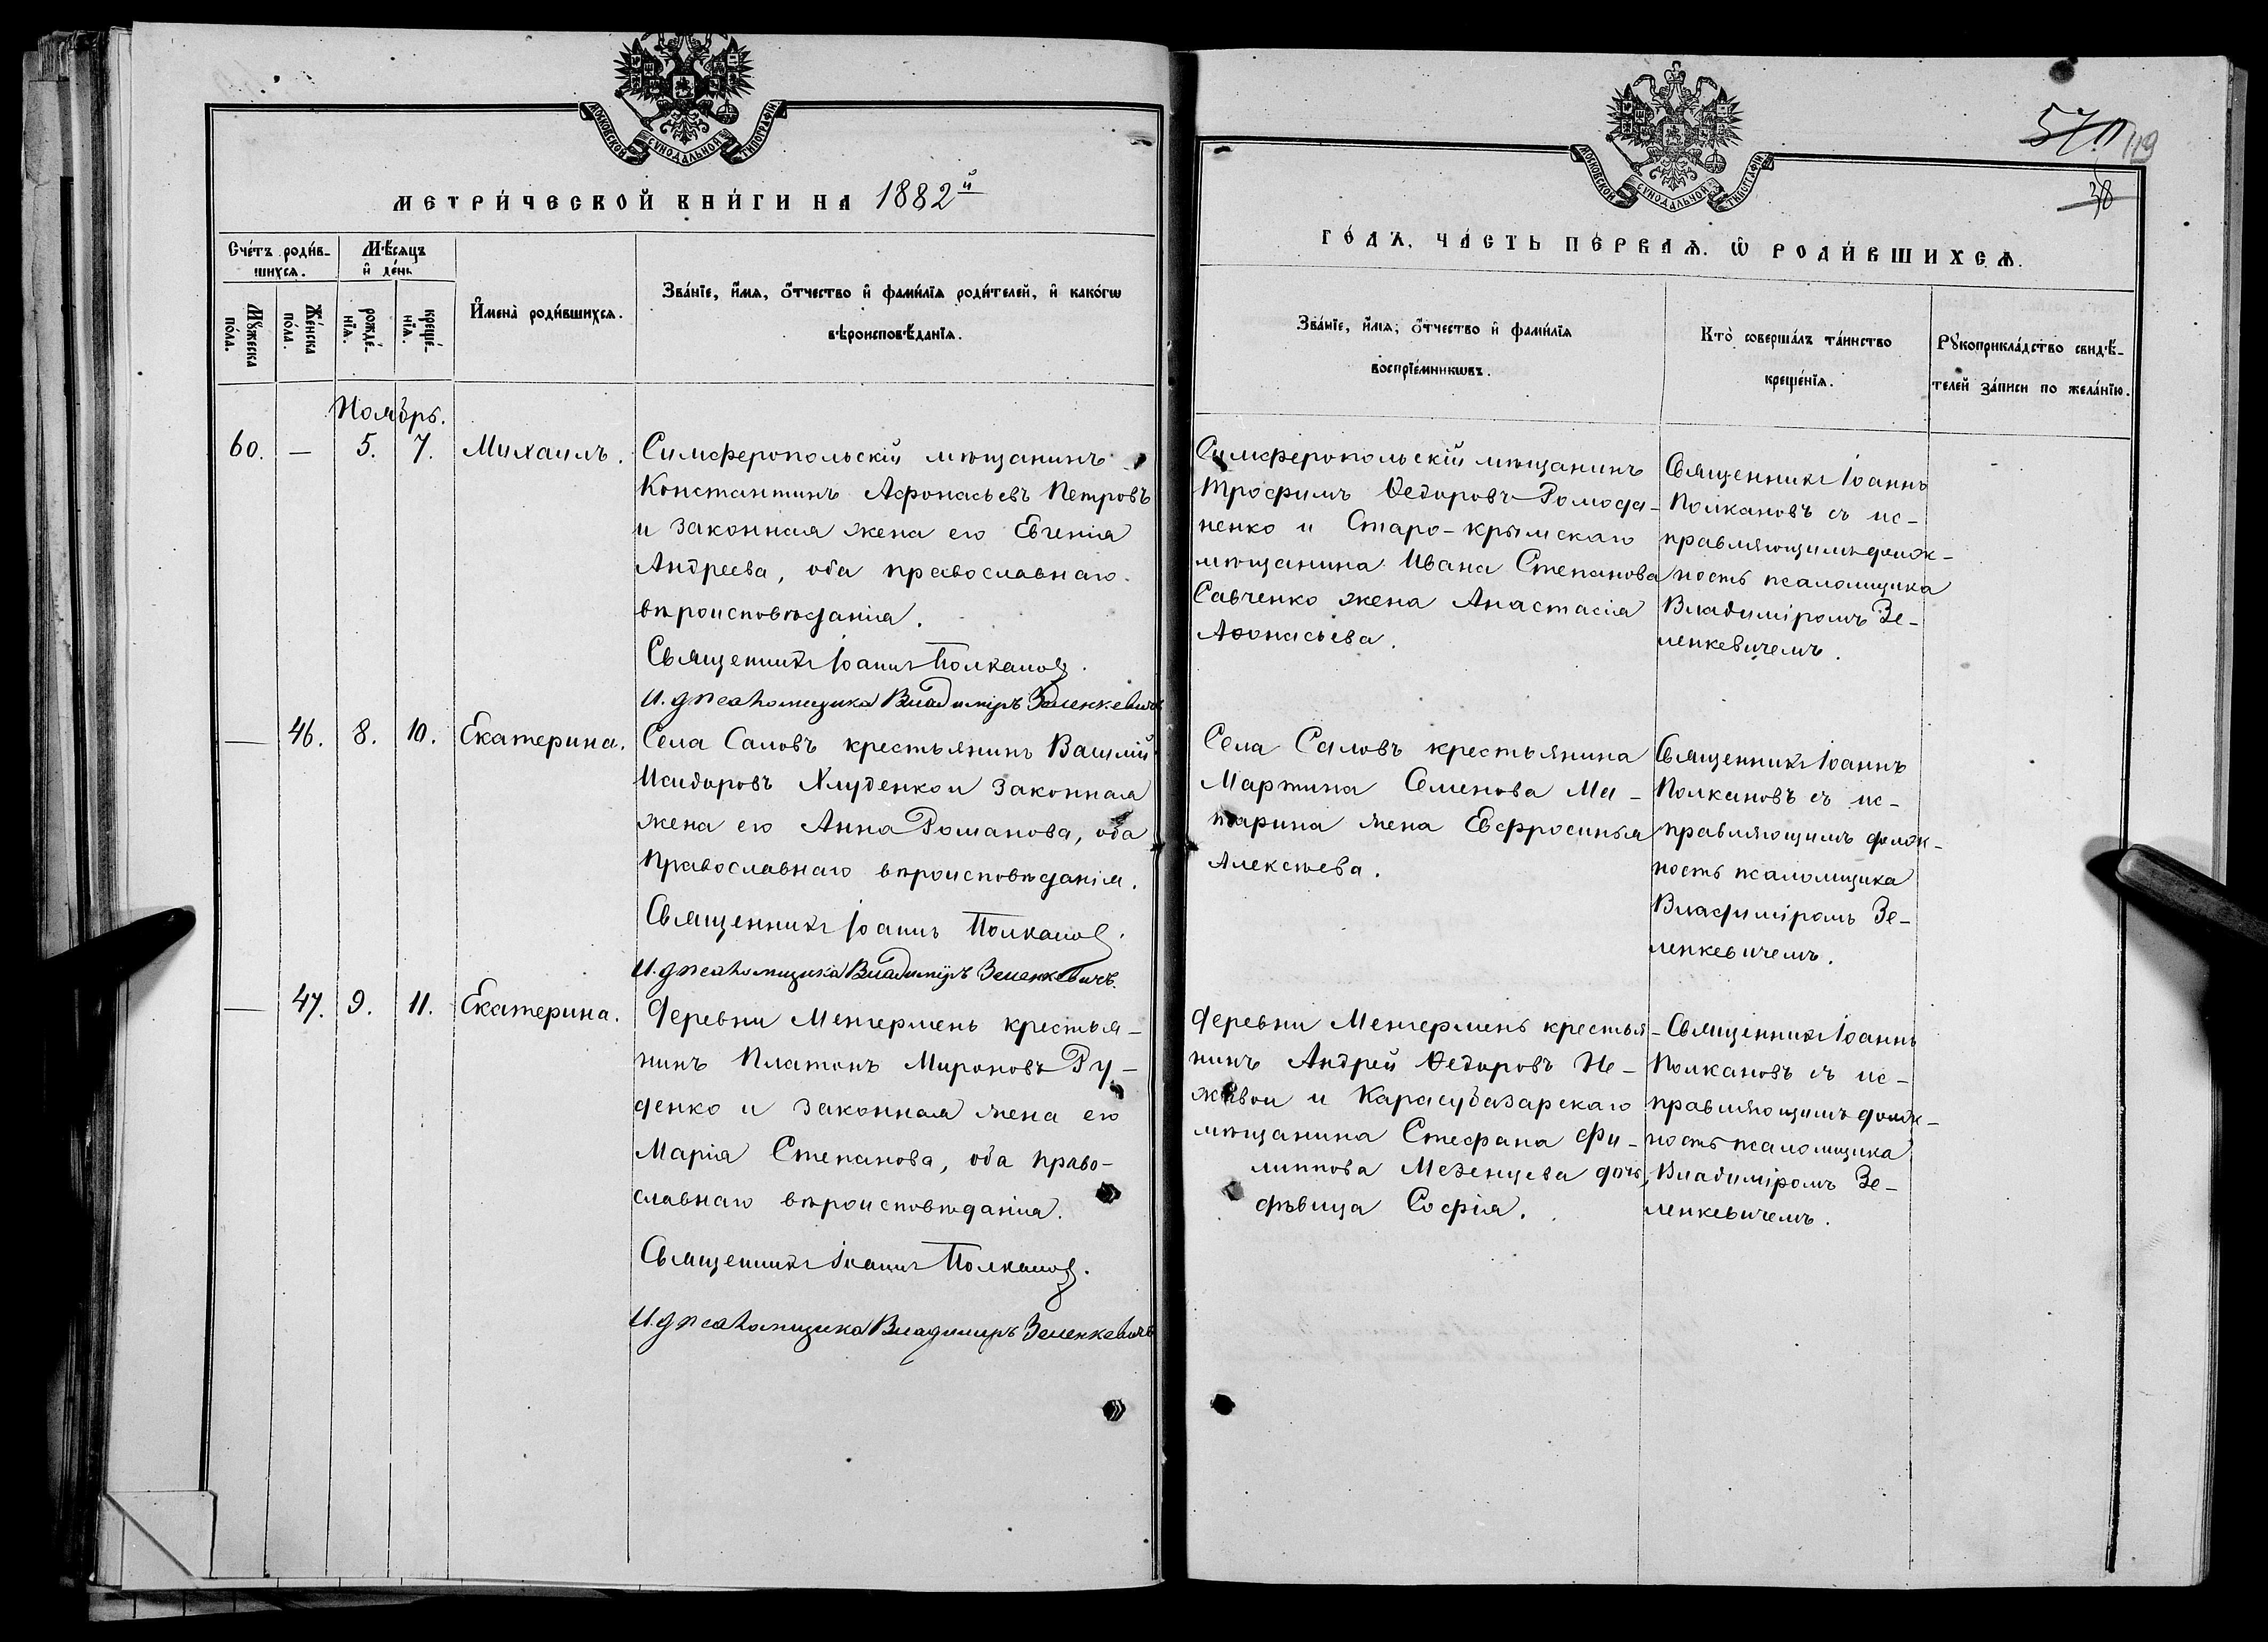 МОСКОВСКОЙ СУНОДАЛЬНОЙ ТИПОГРАФІИ
МЕТРИ́ЧЕСКОЙ КНИ́ГИ НА 1882 й
Сче́тъ роди́в-
шихсѧ.
Мѣ́сѧцъ
и҆ де́нь
Мꙋ́жеска
по́ла.
Же́нска
по́ла.
рожде́-
нїѧ.
креще́-
нїѧ.
И҆мена̀ роди́вшихсѧ.
Зва́нїе, и҆́мѧ, ѻ҆́тчество и҆ фами́лїѧ роди́телей, и҆ како́гѡ
вѣроисповѣ́данїѧ.
Ноябрь.
60. — 5. 7. Михаилъ.
Симферопольскій мѣщанинъ
Константинъ Афонасьевъ Петровъ
и законная жена его Евгенія
Андреева, оба православнаго
вѣроисповѣданія.
Священникъ Іоаннъ Полкановъ.
И. д. псаломщика Владиміръ Зеленкевичъ
— 46. 8. 10. Екатерина.
Села Саловъ крестьянинъ Василій
Исидоровъ Хлуденко и законная
жена его Анна Романова, оба
православнаго вѣроисповѣданія.
Священникъ Іоаннъ Полкановъ.
И. д. псаломщика Владиміръ Зеленкевичъ.
— 47. 9. 11. Екатерина.
Деревни Менгермень крестья-
нинъ Платонъ Мироновъ Ру-
денко и законная жена его
Марія Степанова, оба право-
славнаго вѣроисповѣданія.
Священникъ Іоаннъ Полкановъ.
И. д. псаломщика Владиміръ Зеленкевичъ
МОСКОВСКОЙ СУНОДАЛЬНОЙ ТИПОГРАФІИ
57
119
38
ГО́ДЪ, ЧА́СТЬ ПЕ́РВАѦ. Ѽ РОДИ́ВШИХСѦ.
Зва́нїе, и҆́мѧ, ѻ҆́тчество и҆ фами́лїѧ
воспрїе́мникѡвъ.
Кто̀ соверша́лъ та́инство
креще́нїѧ.
Рꙋкоприкла́дство свидѣ́-
телей за́писи по жела́нїю.
Симферопольскій мѣщанинъ
Трофимъ Ѳедоровъ Ромода-
ненко и Старо-крымскаго
мѣщанина Ивана Степанова
Савченко жена Анастасія
Аѳонасьева.
Священникъ Іоаннъ
Полкановъ съ ис-
правляющимъ долж-
ность псаломщика
Владиміромъ Зе-
ленкевичемъ.
Села Саловъ крестьянина
Мартина Семенова Ма-
тарина жена Евфросинья
Алексѣева.
Священникъ Іоаннъ
Полкановъ съ ис-
правляющимъ долж-
ность псаломщика
Владиміромъ Зе-
ленкевичемъ.
Деревни Менгермень крестья-
нинъ Андрей Ѳедоровъ Не-
живой и Карасубазарскаго
мѣщанина Стефана Фи-
липпова Мезенцева дочь,
дѣвица Софія.
Священникъ Іоаннъ
Полкановъ съ ис-
правляющимъ долж-
ность псаломщика
Владиміромъ Зе-
ленкевичемъ.